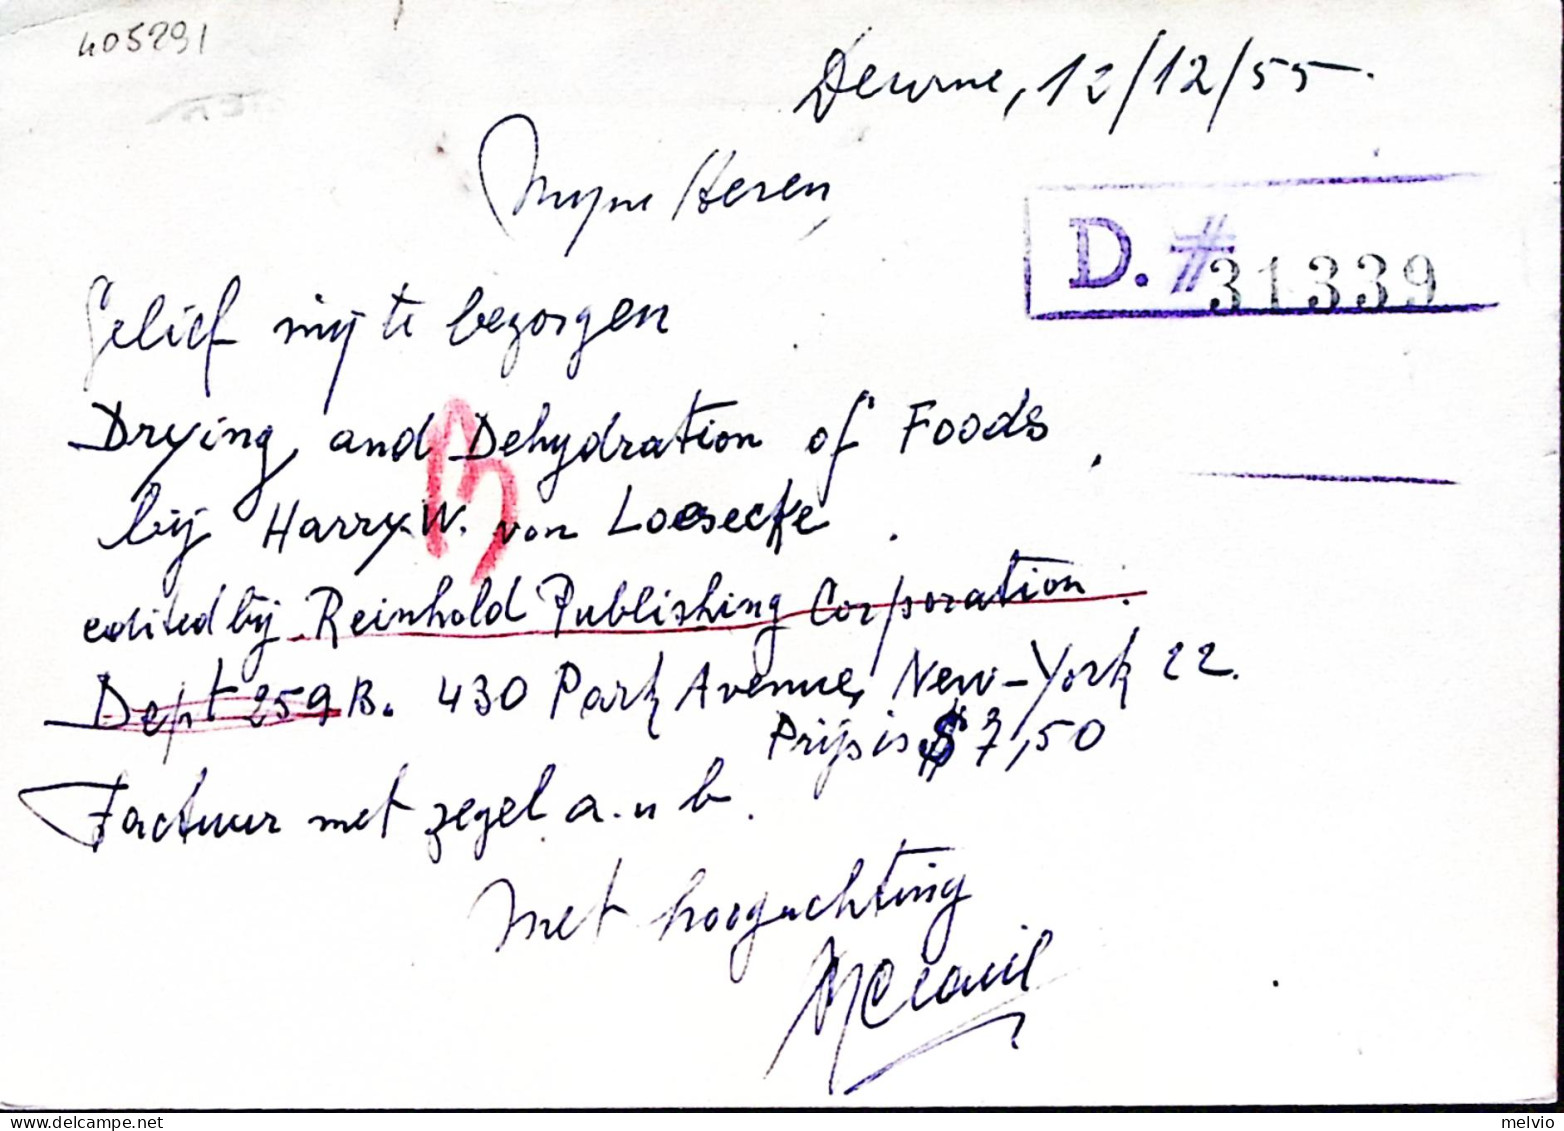 405291
Deurne, 12/12/55.
Myne Heren,
D. # 31339
Gelief mij te bezorgen
Drying and Dehydration of Foods,
bij Harry W. von Loesecke.
B
edited bij Reinhold Publishing Corporation.
Dept 259 B. 430 Park Avenue, New-York 22.
Prijs is $ 7,50
Factuur met zegel a.u b.
Met hoogachting
melvio